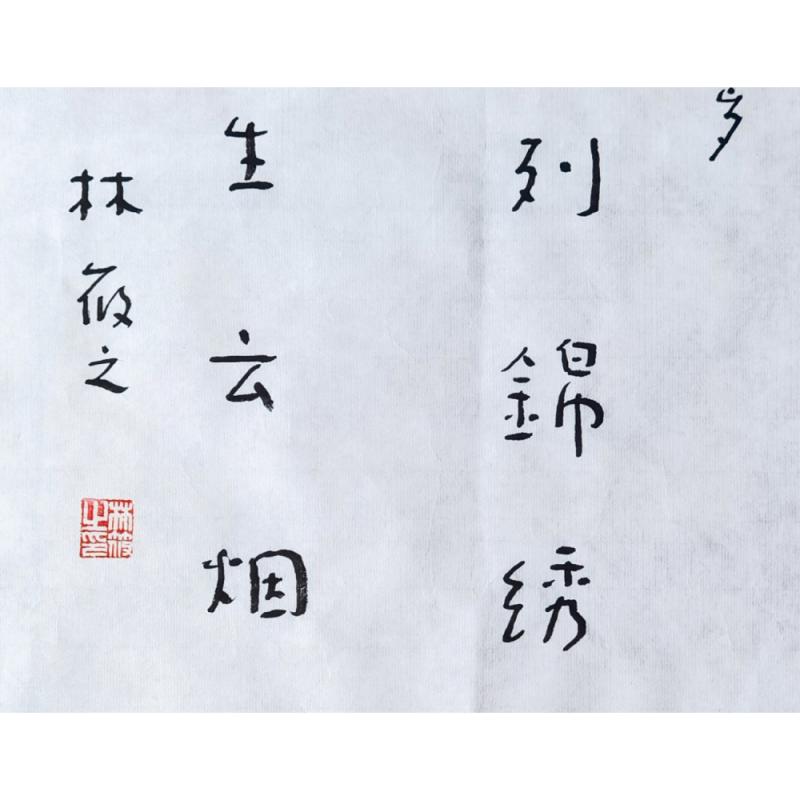 岁
列錦绣
生云烟
林筱之
林筱之印